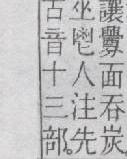 讓釁面吞炭
巫鬯人注先
古音十三部。